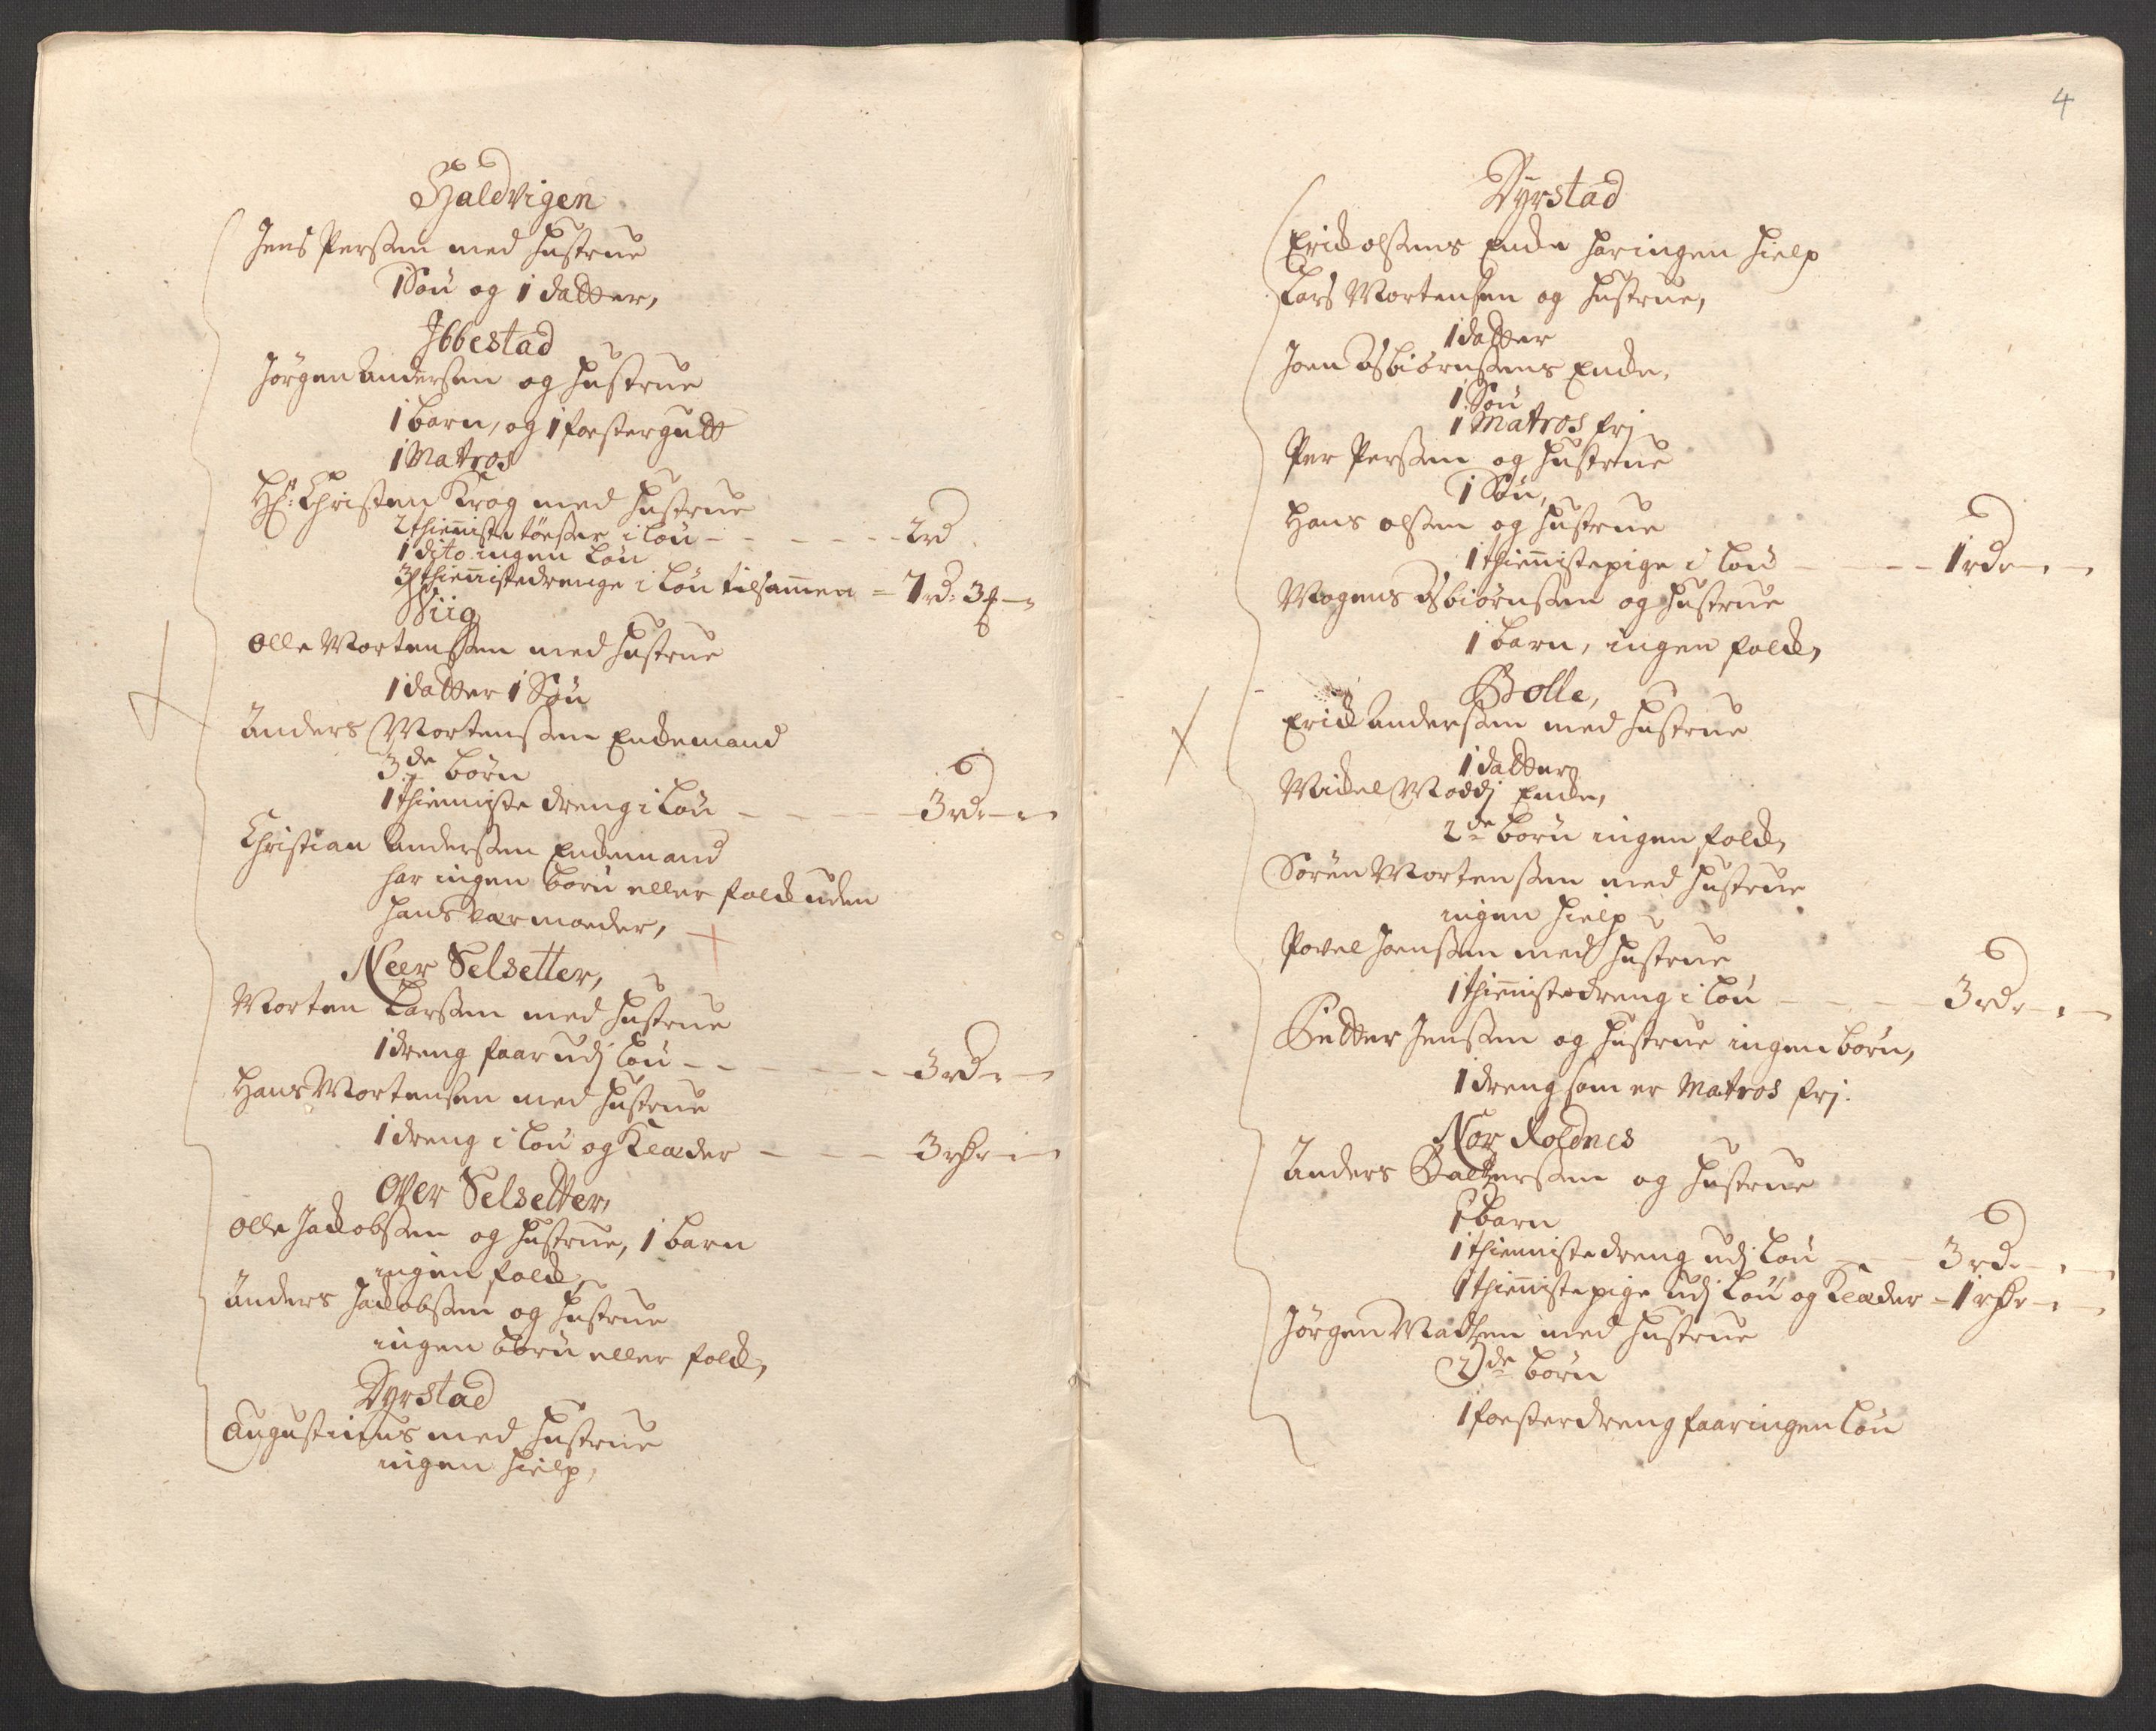 Hjaldvigen
Jens Perssen med hustrue
1 Søn og 1 datter,
Ibbestad
Jørgen Anderssen og hustrue
1 barn, og 1 fostergutt
1 Matros
Hr: Christen Krog med hustrue
2 thienniste töesser i løn - - - - - 2rd
1 dito ingen Løn
3 thiennistedrenge i løn tilsamen = 7rd: 3
Viig
Olle Mortenssen med hustrue
1 datter 1 Søn
Anders Mortenssen Enckemand
3de børn
1 thienniste dreng i Løn - - - - 3rdr - -
Christian Anderssen Enckemand
har ingen børn eller folck uden
hans værmoeder,
Neer Selsetter,
Morten Larssen med hustrue
1 dreng faar udj løn - - - - - 3rdr -
Hans Mortensen med hustrue
1 dreng i løn og Klæder - - - 3rdr - -
Over Selsetter,
Olle Jackobssen og hustrue, 1 barn
ingen folck
Anders Jackobssen og hustrue
ingen børn eller folck,
Dyrstad
Augustinus med hustrue
ingen hielp,
4
Dyrstad
Erick olssens Encke har ingen hielp
Lars Mortensen og hustrue,
1 datter
Joen Asbiörnssens Encke,
1 Søn
1 Matros frj
Per Perssen og hustrue
1 Søn,
Hans olssen og hustrue
1 thiennistepige i løn - - - - 1rdr - -
Mogens Asbiörnssen og hustrue
1 barn, ingen folck,
Bolle,
Erick Anderssen med hustrue
1 datter
Mickel Moddj Encke,
2de børn ingen folck,
Søren Mortenssen med hustrue
ingen hielp
Povel Joenssen med hustrue
1 thiennistedreng i løn - - - - 3rdr - -
Petter Jenssen og hustrue ingen børn,
1 dreng som er Matros frj.
Nor Roldnes
Anders Baltzerssen og hustrue
1 barn
1 thiennistedreng udj løn - - - 3rd - -
1 thiennistepige udj løn og Klæder - 1rdr - -
Jørgen Madtzen med hustrue
2de børn
1 fosterdreng faar ingen løn